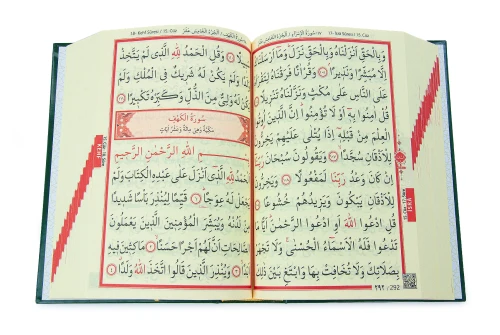 17- İsrâ Sûresi / 15. Cüz
وَبِالْحَقِّ اَنْزَلْنَاهُ وَبِالْحَقِّ نَزَلَ وَمَا اَرْسَلْنَا
اِلَّا مُبَشِّرًا وَنَذِيرًا وَقُرْاٰنًا فَرَقْنَاهُ لِتَقْرَاَهُ
عَلَى النَّاسِ عَلٰى مُكْثٍ وَنَزَّلْنَاهُ تَنْزِيلًا
قُلْ اٰمِنُوا بِهِ اَوْ لَا تُؤْمِنُوا اِنَّ الَّذِينَ
الْعِلْمَ مِنْ قَبْلِهِ اِذَا يُتْلٰى عَلَيْهِمْ يَخِرُّونَ
لِلْاَذْقَانِ سُجَّدًا وَيَقُولُونَ سُبْحَانَ
اِنْ كَانَ وَعْدُ رَبِّنَا لَمَفْعُولًا وَيَخِرُّونَ
لِلْاَذْقَانِ يَبْكُونَ وَيَزِيدُهُمْ خُشُوعًا
قُلِ ادْعُوا اللّٰهَ اَوِ ادْعُوا الرَّحْمٰنَ اَيًّا مَا
تَدْعُوا فَلَهُ الْاَسْمَاءُ الْحُسْنٰى وَلَا تَجْهَرْ
بِصَلَاتِكَ وَلَا تُخَافِتْ بِهَا وَابْتَغِ بَيْنَ ذٰلِكَ
٢٩٢ / 292
İSRÂ
18- Kehf Sûresi / 15. Cüz
سَبِيلًا وَقُلِ الْحَمْدُ لِلّٰهِ الَّذِي لَمْ يَتَّخِذْ
وَلَدًا وَلَمْ يَكُنْ لَهُ شَرِيكٌ فِي الْمُلْكِ وَلَمْ
يَكُنْ لَهُ وَلِيٌّ مِنَ الذُّلِّ وَكَبِّرْهُ تَكْبِيرًا
سُورَةُ الْكَهْفِ
مَكِّيَّةٌ وَهِيَ مِائَةٌ وَعَشْرُ اٰيَاتٍ
بِسْمِ اللّٰهِ الرَّحْمٰنِ الرَّحِيمِ
اَلْحَمْدُ لِلّٰهِ الَّذِي اَنْزَلَ عَلٰى عَبْدِهِ الْكِتَابَ وَلَمْ
يَجْعَلْ لَهُ عِوَجًا قَيِّمًا لِيُنْذِرَ بَاْسًا شَدِيدًا
مِنْ لَدُنْهُ وَيُبَشِّرَ الْمُؤْمِنِينَ الَّذِينَ يَعْمَلُونَ
الصَّالِحَاتِ اَنَّ لَهُمْ اَجْرًا حَسَنًا مَاكِثِينَ فِيهِ
اَبَدًا وَيُنْذِرَ الَّذِينَ قَالُوا اتَّخَذَ اللّٰهُ وَلَدًا